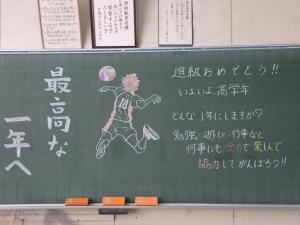 最高な
一年へ
10
進級おめでとう!!
いよいよ、高学年
どんな1年にしますか?
勉強・遊び・行事など
何事にも全力で楽しんで
協力してがんばろう!!